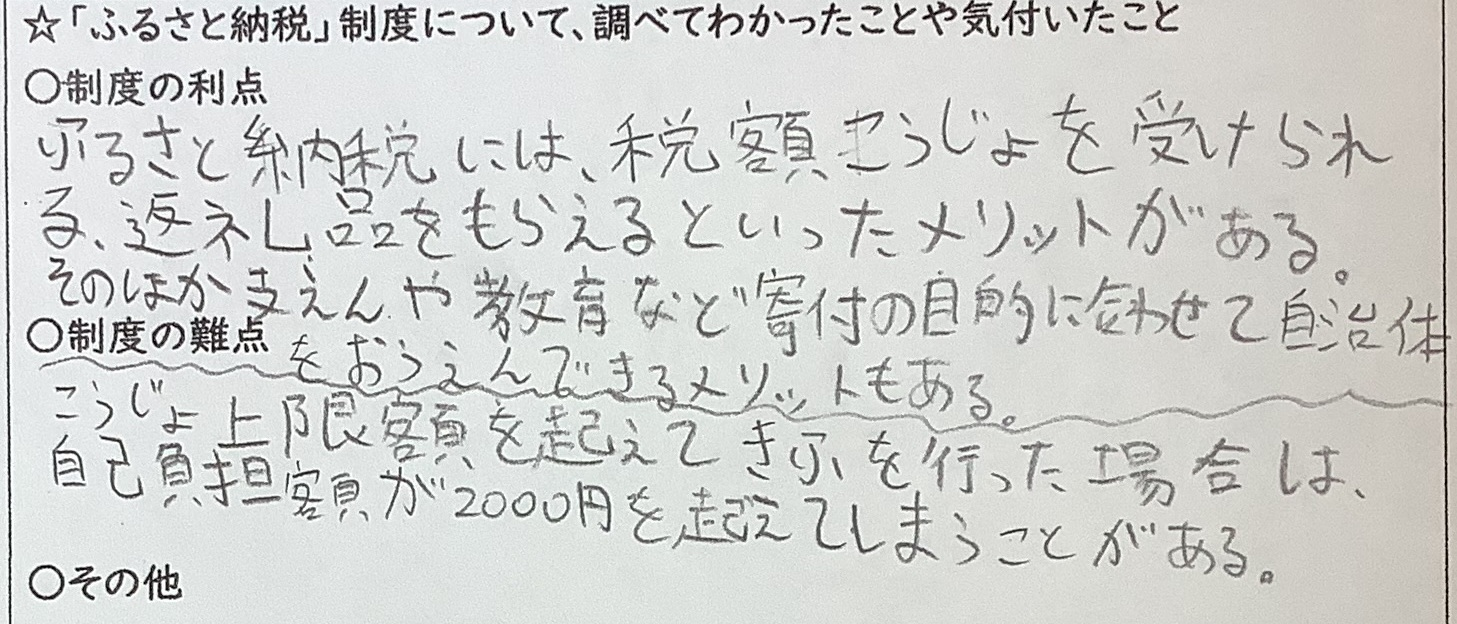 ☆「ふるさと納税」制度について、調べてわかったことや気付いたこと
○制度の利点
ふるさと納税には、税額こうじょを受けられ
る、返ネし品をもらえるといったメリットがある。
そのほか支えんや教育など寄付の目的に合わせて自治体
○制度の難点
をおうえんできるメリットもある。
こうじょ上限額を起えてきふを行った場合は、
自己負担額が2000円を起えてしまうことがある。
○その他